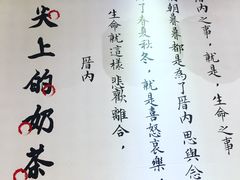 內之事，就是，生命之事
朝暮暮都是為了厝內 思與念
了春夏秋冬，就是喜怒哀樂，
生命就這樣 悲歡離合，
厝內
尖上的奶茶